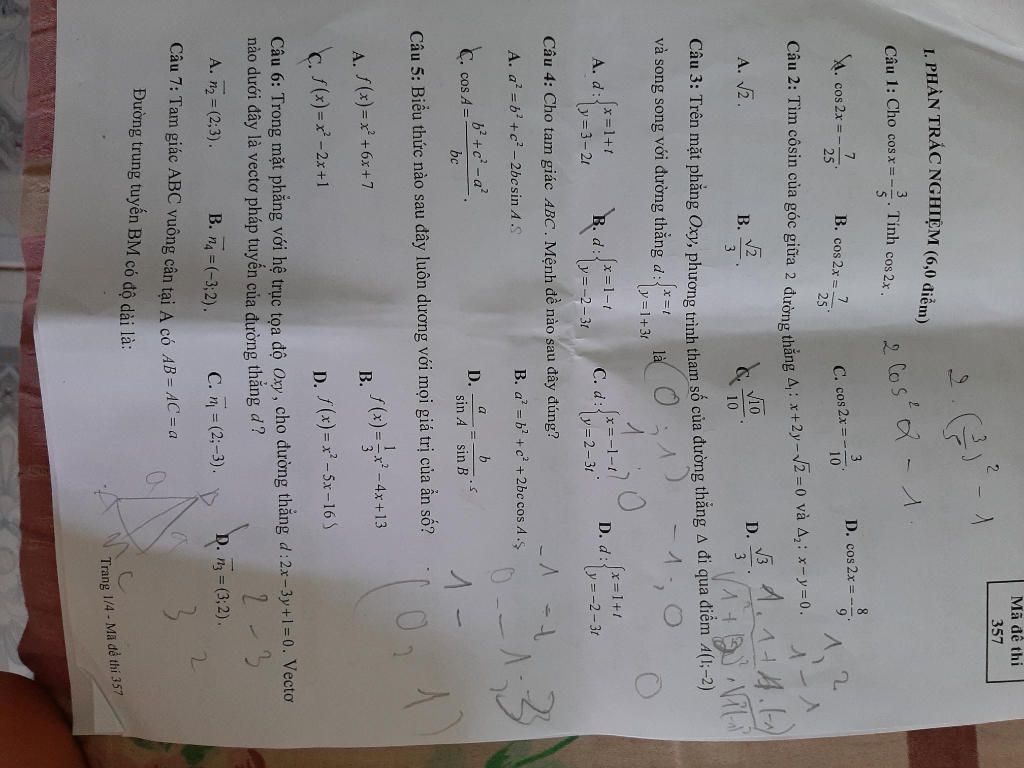 Mã đề thi
357
2.(3/5)² - 1
I. PHẦN TRẮC NGHIỆM (6,0 điểm)
2 cos² α - 1
Câu 1: Cho cos x = -3/5. Tính cos 2x.
A. cos 2x = -7/25. B. cos 2x = 7/25. C. cos 2x = -3/10. D. cos 2x = -8/9.
Câu 2: Tìm côsin của góc giữa 2 đường thẳng Δ₁: x + 2y - √2 = 0 và Δ₂: x - y = 0.
A. √2. B. √2/3. C. √10/10. D. √3/3.
Câu 3: Trên mặt phẳng Oxy, phương trình tham số của đường thẳng Δ đi qua điểm A(1;-2)
và song song với đường thẳng d: {x = -t; y = 1 + 3t là
A. d: {x = 1 + t; y = 3 - 2t B. d: {x = 1 - t; y = -2 - 3t C. d: {x = -1 - t; y = 2 - 3t. D. d: {x = 1 + t; y = -2 - 3t
Câu 4: Cho tam giác ABC. Mệnh đề nào sau đây đúng?
A. a² = b² + c² - 2bc sin A S B. a² = b² + c² + 2bc cos A. S
C. cos A = (b² + c² - a²)/bc. D. a/sin A = b/sin B. S
Câu 5: Biểu thức nào sau đây luôn dương với mọi giá trị của ẩn số?
A. f(x) = x² + 6x + 7 B. f(x) = 1/3 x² - 4x + 13
C. f(x) = x² - 2x + 1 D. f(x) = x² - 5x - 16 S
Câu 6: Trong mặt phẳng với hệ trục tọa độ Oxy, cho đường thẳng d: 2x - 3y + 1 = 0. Vectơ
nào dưới đây là vectơ pháp tuyến của đường thẳng d?
A. n₂ = (2;3). B. n₄ = (-3;2). C. n₁ = (2;-3). D. n₃ = (3;2).
Câu 7: Tam giác ABC vuông cân tại A có AB = AC = a
Đường trung tuyến BM có độ dài là:
Trang 1/4 - Mã đề thi 357